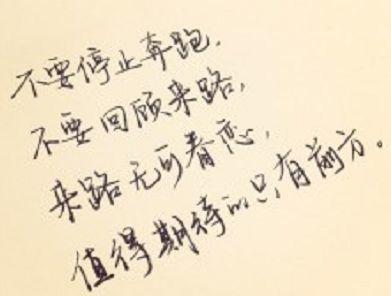 不要停止奔跑，
不要回顾来路，
来路无可眷恋，
值得期待的只有前方。